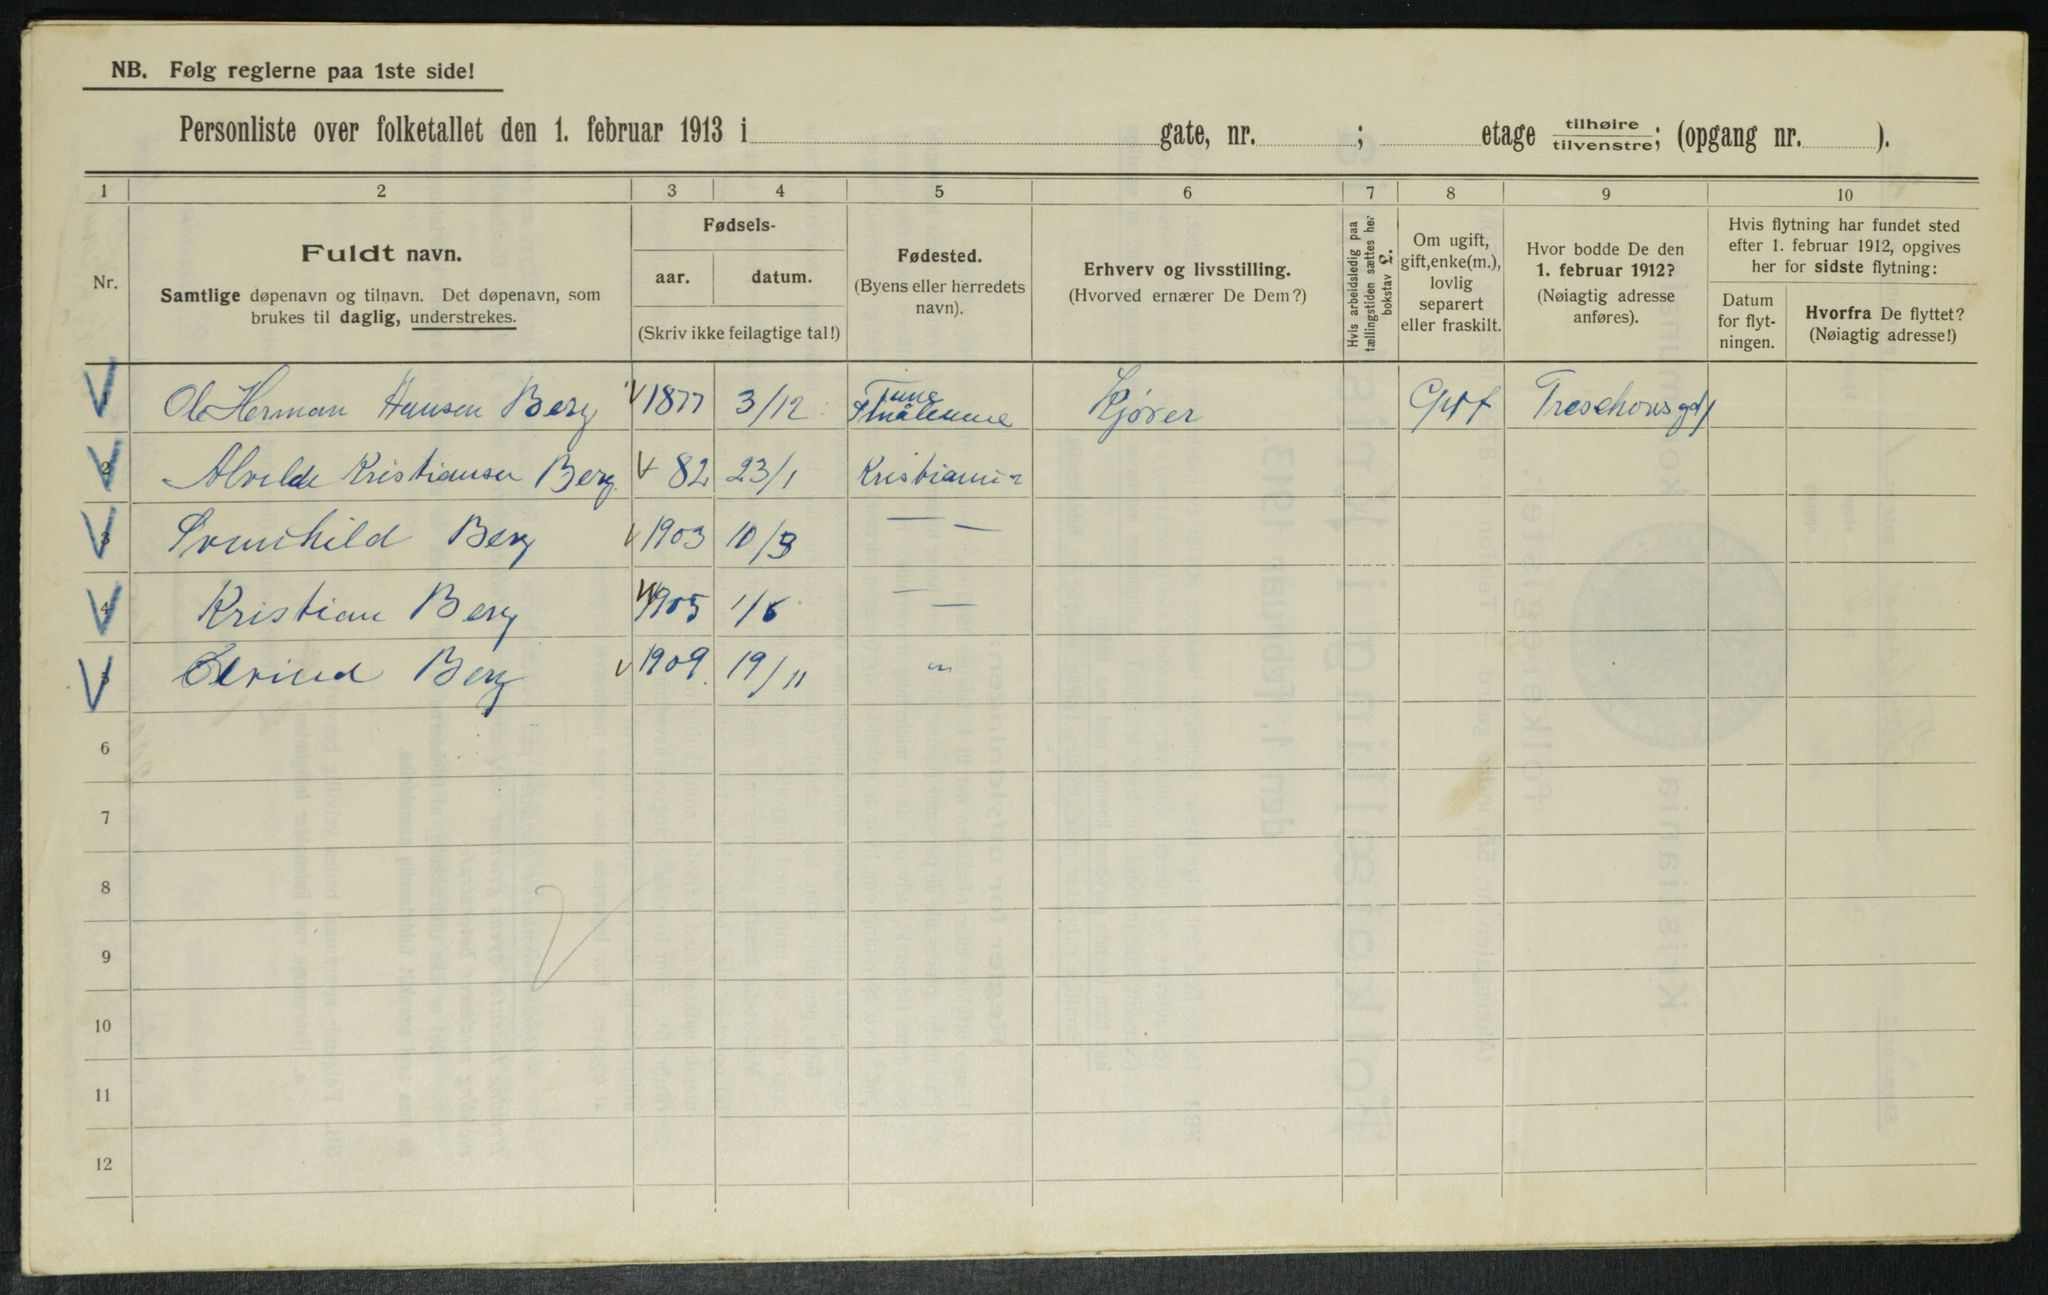 NB. Følg reglerne paa 1ste side!
Personliste over folketallet den 1. februar 1913 i gate, nr. ; etage tilhøire tilvenstre; (opgang nr. ).
1 2 3 4 5 6 7 8 9 10
Nr.
Fuldt navn.
Samtlige døpenavn og tilnavn. Det døpenavn, som
brukes til daglig, understrekes.
Fødsels-
aar. datum.
(Skriv ikke feilagtige tal!)
Fødested.
(Byens eller herredets
navn).
Erhverv og livsstilling.
(Hvorved ernærer De Dem?)
Hvis arbeidsledig paa
tællingstiden sættes her
bokstav L.
Om ugift,
gift, enke(m.),
lovlig
separert
eller fraskilt.
Hvor bodde De den
1. februar 1912?
(Nøiagtig adresse
anføres).
Hvis flytning har fundet sted
efter 1. februar 1912, opgives
her for sidste flytning:
Datum
for flyt-
ningen.
Hvorfra De flyttet?
(Nøiagtig adresse!)
Ole Herman Hansen Berg 1877 3/12 Tune Smålenene Kjører Gift
2 Alvilde Kristiansen Berg 82 23/1 Kristiania
3 Berg 1903 10/3 — —
4 Kristian Berg 1905 1/6 — —
5 Berg 1909. 19/11 "
6
7
8
9
10
11
12